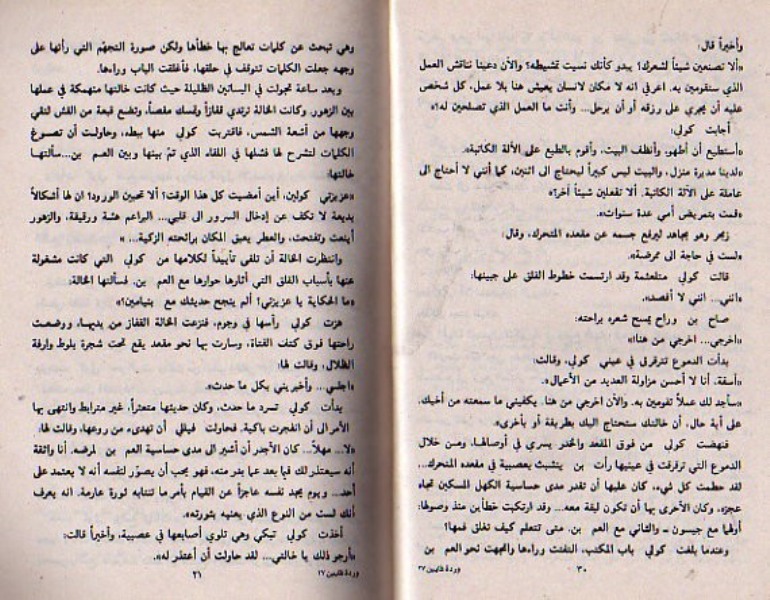 وأخيراً قال:
«ألا تصنعين شيئاً لشعرك؟ يبدو كأنك نسيت تمشيطه؟ والآن دعينا نناقش العمل
الذي ستقومين به. اعرفي انه لا مكان لانسان يعيش هنا بلا عمل، كل شخص
عليه أن يجري على رزقه أو أن يرحل... وأنت ما العمل الذي تصلحين له؟»
أجابت كولي:
«أستطيع أن أطهو، وأنظف البيت، وأقوم بالطبع على الآلة الكاتبة».
«لدينا مديرة منزل، والبيت ليس كبيراً ليحتاج الى اثنتين، كما أنني لا أحتاج الى
عاملة على الآلة الكاتبة. ألا تفعلين شيئاً آخر؟»
«قمت بتمريض أمي عدة سنوات».
زمجر وهو يجاهد ليرفع جسمه عن مقعده المتحرك، وقال:
«لست في حاجة الى ممرضة».
قالت كولي متلعثمة وقد ارتسمت خطوط القلق على جبينها:
«انني... انني لا أقصد».
صاح بن وراح يمسح شعره براحته:
«اخرجي... اخرجي من هنا!»
بدأت الدموع تترقرق في عيني كولي، وقالت:
«آسفة. أنا لا أحسن مزاولة العديد من الأعمال».
«سأجد لك عملاً تقومين به. والآن اخرجي من هنا. يكفيني ما سمعته من أخيك.
على أية حال، أن خالتك ستحتاج اليك بطريقة أو بأخرى».
فنهضت كولي من فوق المقعد والخدر يسري في أوصالها، ومن خلال
الدموع التي ترقرقت في عينيها رأت بن يتشبث بعصبية في مقعده المتحرك...
لقد حطمت كل شيء، كان عليها أن تقدر مدى حساسية الكهل المسكين تجاه
عجزه، وكان الأحرى بها أن تكون لبقة معه... وقد ارتكبت خطأين منذ وصولها:
أولهما مع جيسون ـ والثاني مع العم بن. متى تتعلم كيف تغلق فمها؟
وعندما بلغت كولي باب المكتب، التفتت وراءها واتجهت نحو العم بن
وردة قايين ٢٧
٣٠
وهي تبحث عن كلمات تعالج بها خطأها ولكن صورة التجهم التي رأتها على
وجهه جعلت الكلمات تتوقف في حلقها، فأغلقت الباب وراءها.
وبعد ساعة تجولت في البساتين الظليلة حيث كانت خالتها منهمكة في عملها
بين الزهور. وكانت الخالة ترتدي قفازاً وتمسك مقصاً، وتضع قبعة من القش لتقي
وجهها من أشعة الشمس، فاقتربت كولي منها ببطء، وحاولت أن تصوغ
الكلمات لتشرح لها فشلها في اللقاء الذي تمّ بينها وبين العم بن... سألتها
خالتها:
«عزيزتي كولين، أين أمضيت كل هذا الوقت؟ ألا تحبين الورود؟ ان لها أشكالاً
بديعة لا تكف عن إدخال السرور الى قلبي... البراعم هشة ورقيقة، والزهور
أينعت وتفتحت، والعطر يعبق المكان برائحته الزكية... »
وانتظرت الخالة أن تلقى تأييداً لكلامها من كولي التي كانت مشغولة
عنها بأسباب القلق التي أثارها حوارها مع العم بن. فسألتها الخالة:
«ما الحكاية يا عزيزتي؟ ألم ينجح حديثك مع بنيامين؟»
هزت كولي رأسها في وجوم، فنزعت الخالة القفاز من يديها، ووضعت
راحتها فوق كتف الفتاة، وسارت بها نحو مقعد يقع تحت شجرة بلوط وارفة
الظلال، وقالت لها:
«اجلسي... وأخبريني بكل ما حدث».
بدأت كولي تسرد ما حدث، وكان حديثها متعثراً، غير مترابط وانتهى بها
الأمر الى أن انفجرت باكية. فحاولت فيللي أن تهدىء من روعها، وقالت لها:
«لا... مهلاً... كان الأجدر أن أشير الى مدى حساسية العم بن لمرضه. أنا واثقة
أنه سيعتذر لك فيما بعد عما بدر منه، فهو يحب أن يصوّر لنفسه أنه لا يعتمد على
أحد... ويوم يجد نفسه عاجزاً عن القيام بأمر ما تنتابه ثورة عارمة. انه يعرف
أنك لست من النوع الذي يعنيه بثورته».
أخذت كولي تبكي وهي تلوي أصابعها في عصبية، وأخيراً قالت:
«أرجو ذلك يا خالتي... لقد حاولت أن أعتذر له».
وردة قايين ٢٧
٣١